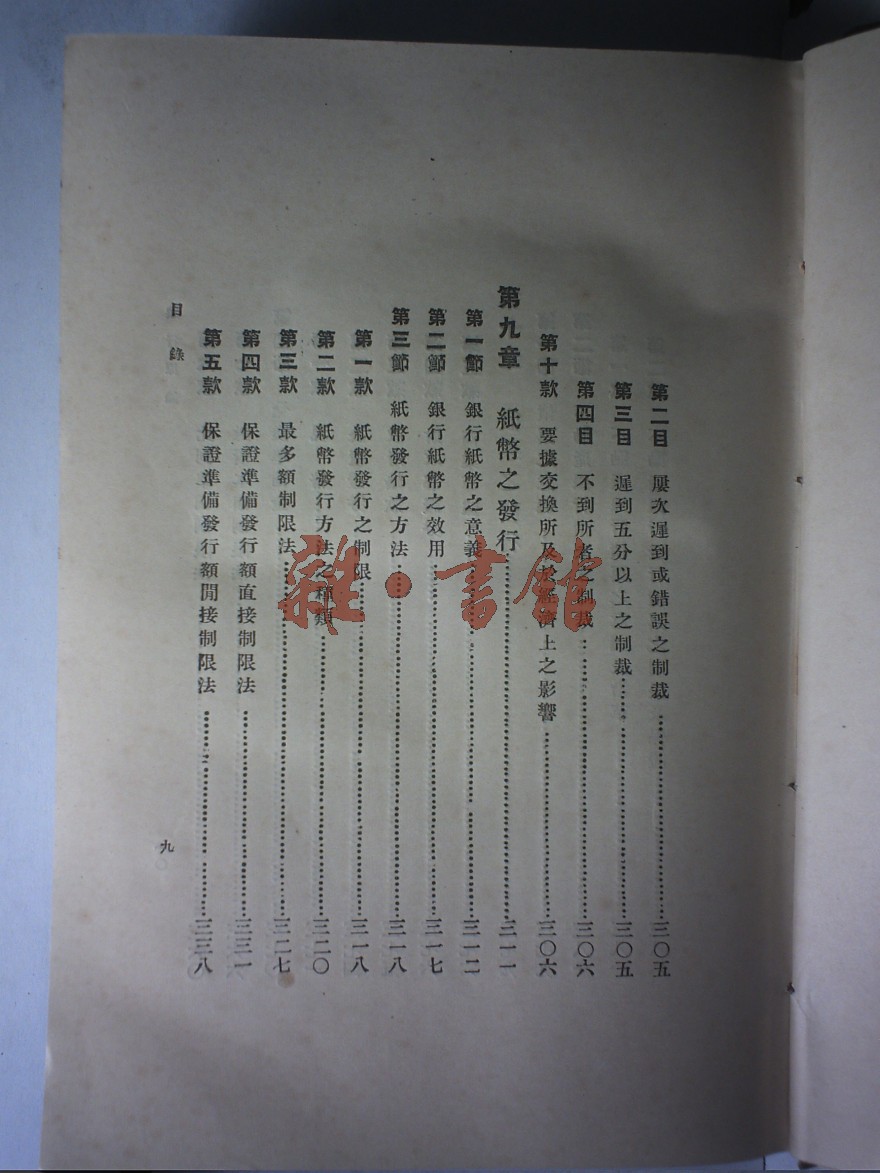 第二目 屢次遲到或錯誤之制裁……三〇五
第三目 遲到五分以上之制裁……三〇五
第四目 不到所者之制裁……三〇六
第十款 要據交換所及於經濟上之影響……三〇六
第九章 紙幣之發行……三一一
第一節 銀行紙幣之意義……三一二
第二節 銀行紙幣之效用……三一七
第三節 紙幣發行之方法……三一八
第一款 紙幣發行之制限……三一八
第二款 紙幣發行方法之種類……三二〇
第三款 最多額制限法……三二七
第四款 保證準備發行額直接制限法……三三一
第五款 保證準備發行額間接制限法……三三八
目錄
九
雜·書館